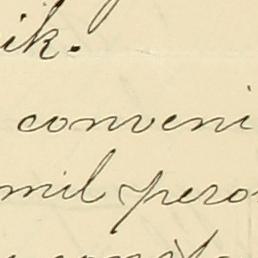 ik.
conveni
mil pero